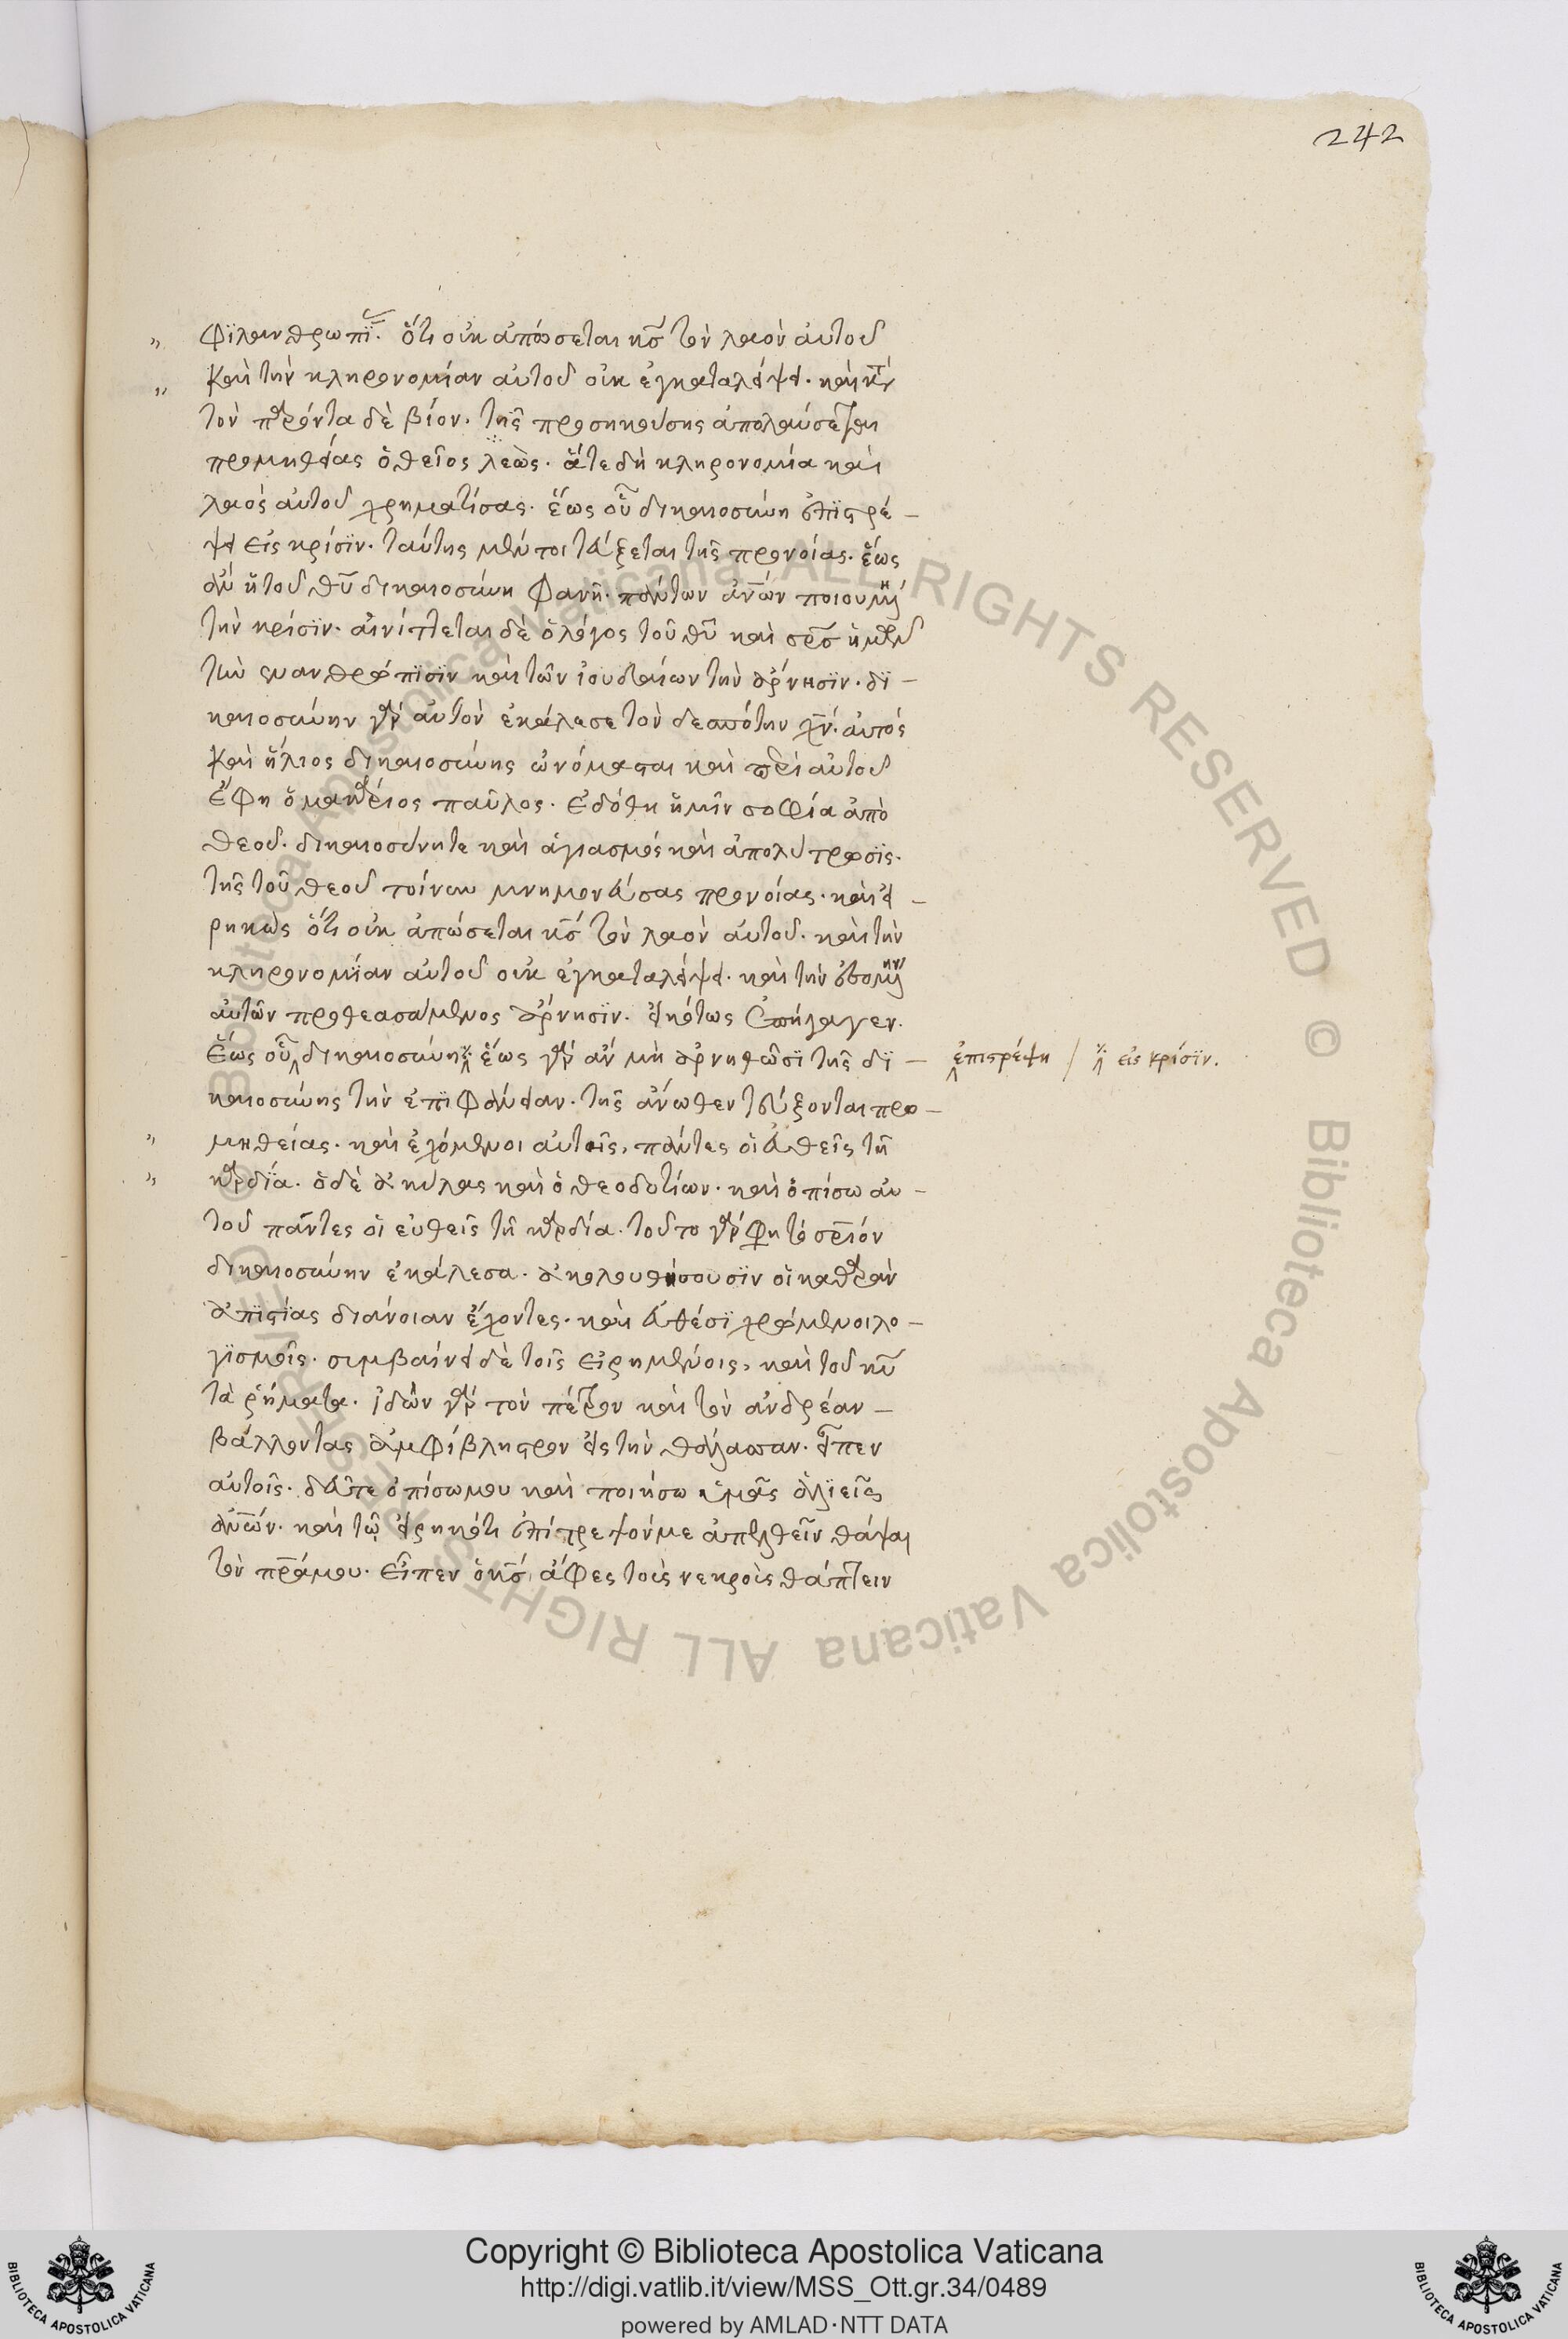 242
φϊλανθρωπϊ. ὅτι οὐκ ἀπώσεται κς̅ τὸν λαὸν ἀυτοῦ
καὶ τὴν κληρονομίαν αὐτοῦ οὐκ ἐγκαταλείψει. καὶ κτ̅
τὸν παρόντα δὲ βίον. τῆς προσηκούσης ἀπολαύσεται
προμηθείας ὁ θεῖος λεὼς. ἅτε δὴ κληρονομία καὶ
λαὸς αὐτοῦ χρηματίσας. ἕως οὗ δικαιοσύνη ἐπϊστρέ –
ψει εἰς κρίσϊν. ταύτης μέν τοι τεύξεται τῆς προνοίας. ἕως
ἂν ἡ τοῦ θῦ δικαιοσύνη φανῆ. πάντων ἀνῶν ποιουμένη
τὴν κρίσϊν. αἰνίττεται δὲ ὁ λόγος τοῦ θῦ καὶ σρ̅ς ἡμῶν
τὴν ἐνανθρώπϊσϊν καὶ τῶν ἰουδαίων τὴν ἄρνησϊν. δϊ –
καιοσύνην γὰρ αὐτὸν ἐκάλεσε τὸν δεσπότην χν̅. αὐτὸς
καὶ ἥλιος δικαιοσύνης ὠνόμασται καὶ περὶ αὐτοῦ
ἔφη ὁ μακάριος παῦλος. ἐδόθη ἡμῖν σοφία ἀπὸ
θεοῦ. δικαιοσύνητε καὶ ἁγιασμός καὶ ἀπολύτρωσϊς.
τῆς τοῦ θεοῦ τοίνυν μνημονεύσας προνοίας. καὶ εἰ –
ρηκὼς ὅτι οὐκ ἀπώσεται κς̅ τὸν λαὸν αὐτοῦ. καὶ τὴν
κληρονομϊαν αὐτοῦ οὐκ ἐγκαταλείψει. καὶ τὴν ἐσομένην
αὐτῶν προθεασάμενος ἄρνησϊν. εἰκότως ἐπήγαγεν.
ἕως οὗ δικαιοσύνη ἕως γὰρ ἂν μὴ ἀρνηθῶσϊ τῆς δϊ – ἐπιστρέψη / εἰς κρίσϊν.
καιοσύνης τὴν ἐπϊφάνειαν. τῆς ἄνωθεν τεύξονται προ –
μηθείας. καὶ ἐχόμενοι αὐτῆς, πάντες οἱ εὐθεῖς τῆ
καρδϊα. ὁ δὲ ἀκύλας καὶ ὁ θεοδοτίων. καὶ ὀπίσω αυ –
τοῦ πάντες οἱ εὐθεῖς τῆ καρδία. τοῦτο γάρ φη τὸ σριον
δικαιοσύνην ἐκάλεσα. ἀκολουθήσουσϊν οἱ καθαρὰν
ἀπϊστϊας διάνοιαν ἔχοντες. καὶ εὐθέσϊ χρώμενοι λο –
γϊσμοῖς. συμβαίνει δὲ τοῖς εἰρημένοις, καὶ τοῦ κῦ
τὰ ῥήματα. ἰδὼν γὰρ τὸν πέτρον καὶ τὸν ἀνδρέαν –
βάλλοντας ἀμφίβληστρον εἰς τὴν θάλασσαν. εἶπεν
αὐτοῖς. δεῦτε ὀπίσωμου καὶ ποιήσω ὑμᾶς ἁλϊεῖς
ἀνῶν. καὶ τῷ εἰρηκότι ἐπίτρεψόν με ἀπελθεῖν θάψαι
τὸν πρ̅άμου. εἶπεν ὁ κς̅ ἄφες τοὺς νεκροὺς θάπτειν
Copyright © Biblioteca Apostolica Vaticana
http://digi.vatlib.it/view/MSS_Ott.gr.34/0489
powered by AMLAD·NTT DATA